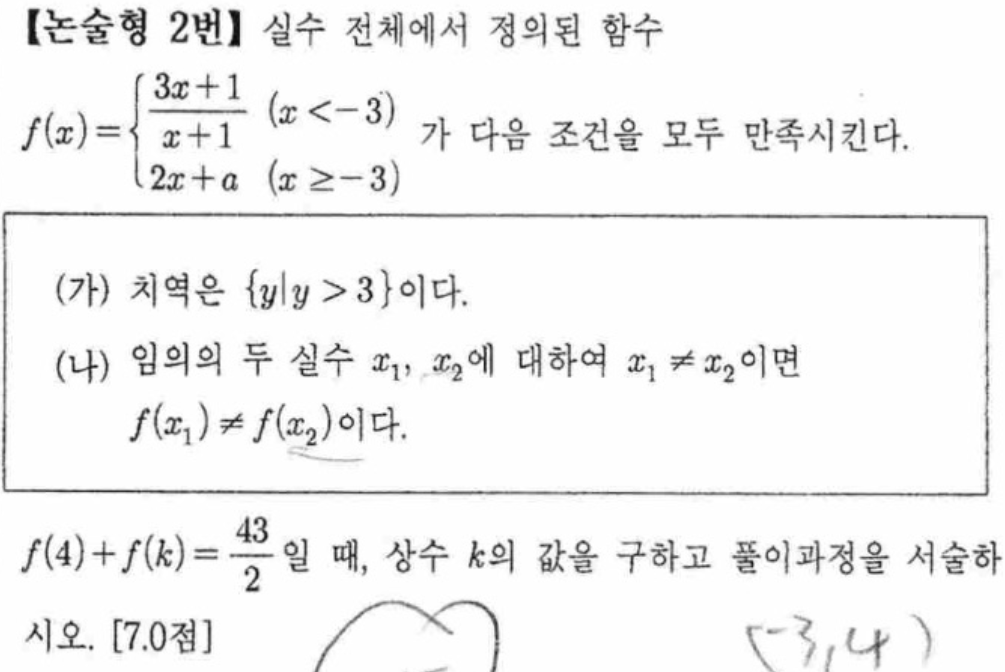 【논술형 2번】 실수 전체에서 정의된 함수
f(x)={ (3x+1)/(x+1) (x<-3)
2x+a (x≥-3) 가 다음 조건을 모두 만족시킨다.
(가) 치역은 {y|y>3}이다.
(나) 임의의 두 실수 x₁, x₂에 대하여 x₁≠x₂이면
f(x₁)≠f(x₂)이다.
f(4)+f(k)=43/2일 때, 상수 k의 값을 구하고 풀이과정을 서술하
시오. [7.0점]
(-3,4)